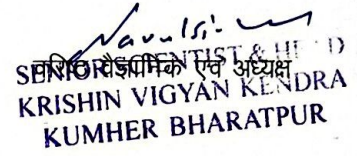 Navalsi
वरिष्ठ वैज्ञानिक एवं अध्यक्ष
SENIOR SCIENTIST & HEAD
KRISHIN VIGYAN KENDRA
KUMHER BHARATPUR